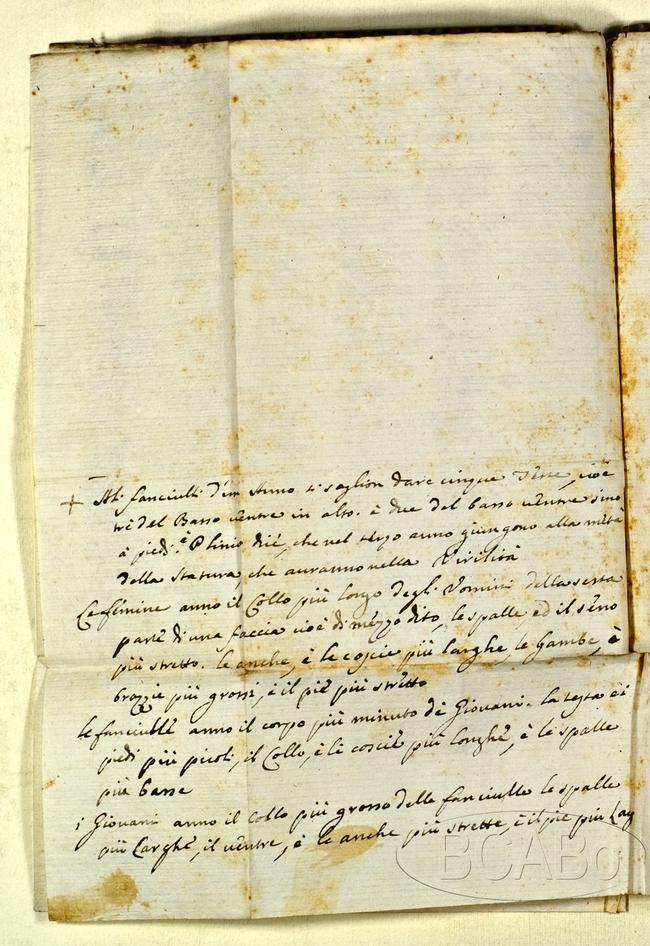 + Ali fanciulli d'un Anno si soglion dare cinque Teste, cioè
tre del Basso ventre in alto. è due del basso ventre sino
à piedi. è Plinio dice, che nel terzo anno giungono alla metà
della Statura che auranno nella Virilità
Le femine anno il Collo più longo degli Vomini della sesta
parte di una faccia cioè di mezzo dito, le spalle, ed il seno
più stretto. le anche, è le coscie più larghe, le Gambe, è
brazzie più grossi, è il piè più stretto
le fanciulle anno il corpo più minuto dè Giovani. la testa è i
piedi più picoli, il Collo, è le coscie più longhe, è le spalle
più basse
i Giovani anno il Collo più grosso delle fanciulle le spalle
più Larghe, il ventre, è le anche più strette, è il piè più Larg
BCABo